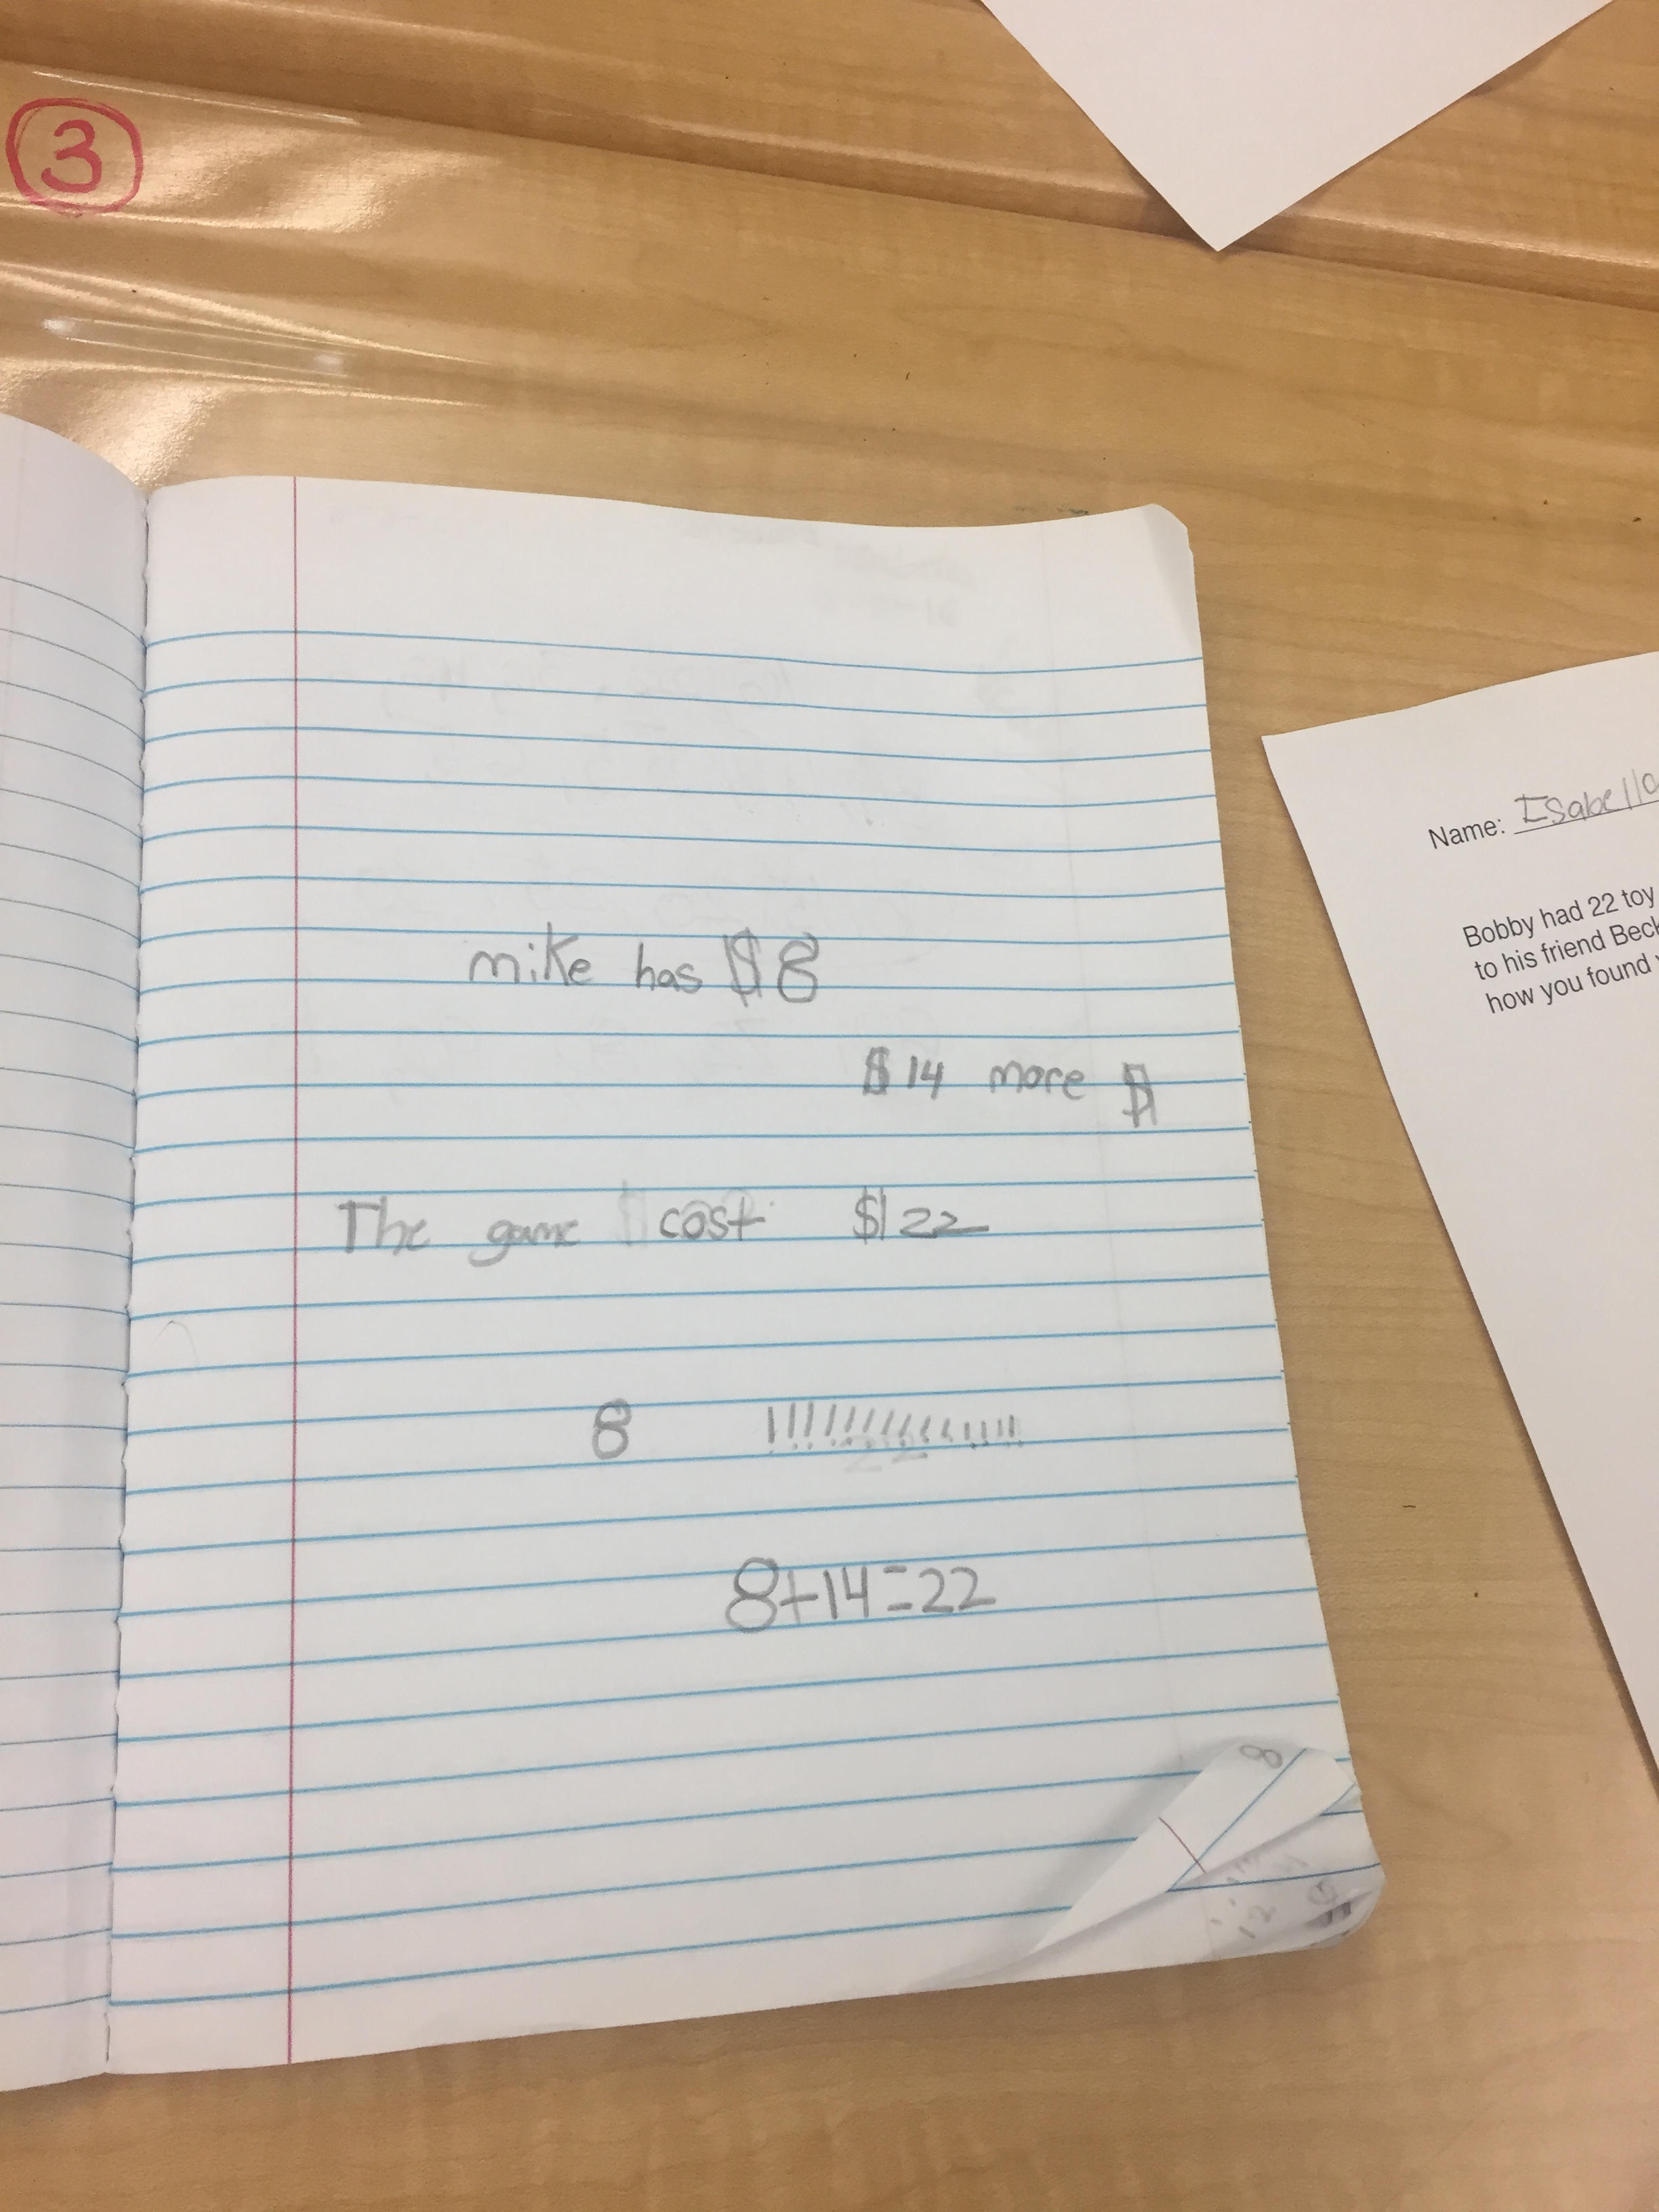 3
mike has $8
$14 more $
The game cost $22
8 !!!!!!!!!!!!!!
8+14=22
8
Name: Isabella
Bobby had 22 toy
to his friend
how you found